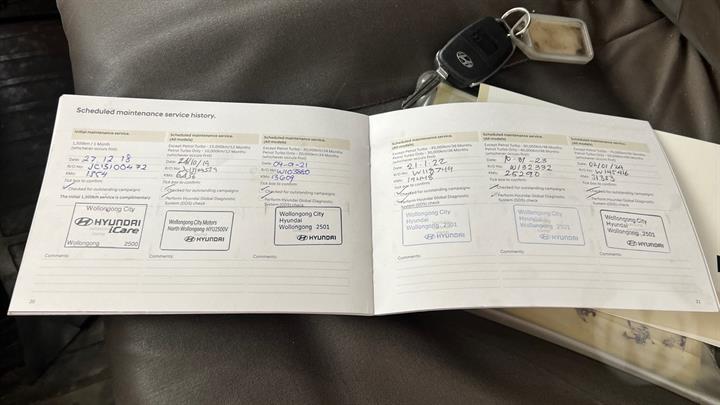 Scheduled maintenance service history.
Initial maintenance service.
1,500km / 1 Month
(whichever occurs first)
Date: 27.12.18
R/O No: JC15100472
KMs: 1804
Tick box to confirm:
Checked for outstanding campaigns
The initial 1,500km service is complimentary
Wollongong City
HYUNDAI
iCare
Wollongong 2500
Comments:
Scheduled maintenance service.
(All models)
Except Petrol Turbo - 15,000km/12 Months
Petrol Turbo Only - 10,000km/12 Months
(whichever occurs first)
Date:
R/O No:
KMs:
Tick box to confirm:
Checked for outstanding campaigns
Perform Hyundai Global Diagnostic
System (GDS) check
Wollongong City Motors
North Wollongong HYU2500V
HYUNDAI
Comments:
Scheduled maintenance service.
(All models)
Except Petrol Turbo - 30,000km/24 Months
Petrol Turbo Only - 20,000km/24 Months
(whichever occurs first)
Date: 04-9-21
R/O No: W103860
KMs: 13609
Tick box to confirm:
Checked for outstanding campaigns
Perform Hyundai Global Diagnostic
System (GDS) check
Wollongong City
Hyundai
Wollongong 2501
HYUNDAI
Comments:
20
Scheduled maintenance service.
(All models)
(whichever occurs first)
Date: 21.1.22
R/O No:
KMs:
Tick box to confirm:
Checked for outstanding campaigns
Perform Hyundai Global Diagnostic
System (GDS) check
Wollongong City
Hyundai
Wollongong 2501
HYUNDAI
Comments:
Scheduled maintenance service.
(All models)
(whichever occurs first)
Date: 10-01-23
R/O No: W132392
KMs: 25290
Tick box to confirm:
Checked for outstanding campaigns
Perform Hyundai Global Diagnostic
System (GDS) check
Wollongong City
Hyundai
Wollongong 2501
HYUNDAI
Comments:
Scheduled maintenance service.
(All models)
(whichever occurs first)
Date: 04/01/24
R/O No: W145416
KMs: 31353
Tick box to confirm:
Checked for outstanding campaigns
Perform Hyundai Global Diagnostic
System (GDS) check
Wollongong City
Hyundai
Wollongong 2501
HYUNDAI
Comments:
21